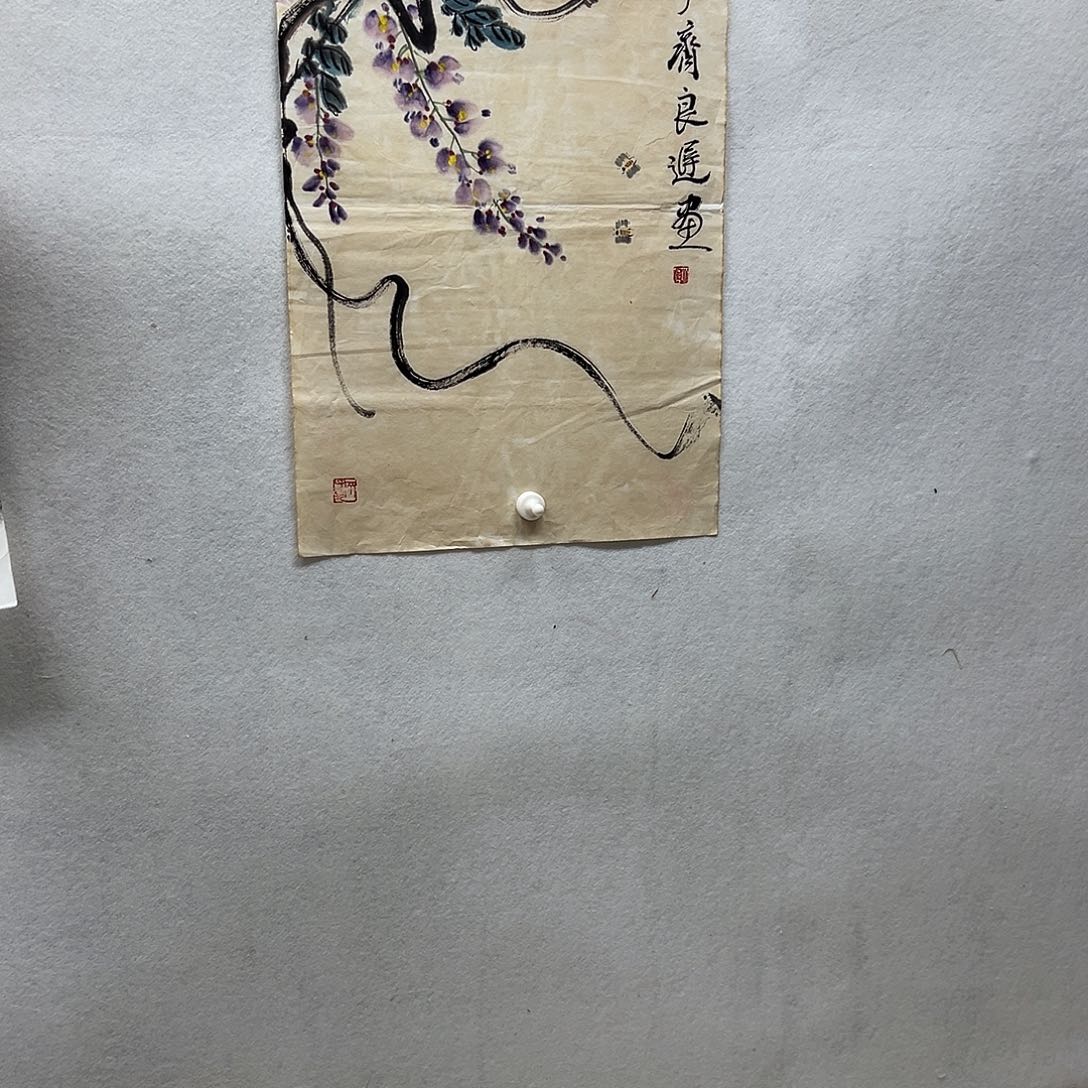 齊良遲畫